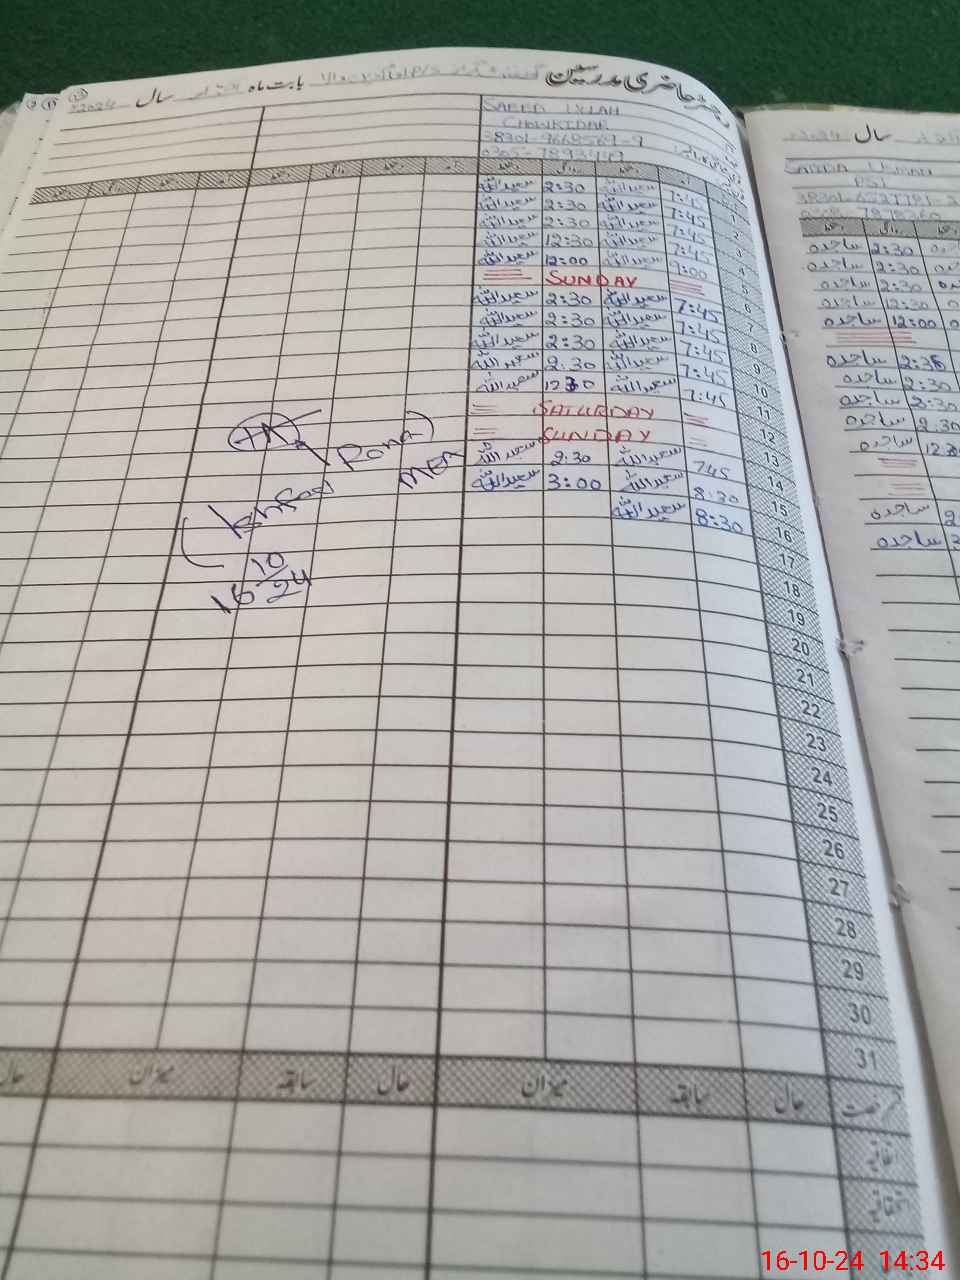 رجسٹر حاضری مدرسین بابت ماہ سال 2024
SAEED ULLAH
CHOWKIDAR
38301-9668569-9
سعید اللہ 2:30 سعید اللہ 7:45 1
سعید اللہ 2:30 سعید اللہ 7:45 2
سعید اللہ 2:30 سعید اللہ 7:45 3
سعید اللہ 12:30 سعید اللہ 7:45 4
سعید اللہ 12:00 سعید اللہ 9:00 5
SUNDAY 6
سعید اللہ 2:30 سعید اللہ 7:45 7
سعید اللہ 2:30 سعید اللہ 7:45 8
سعید اللہ 2:30 سعید اللہ 7:45 9
سعید اللہ 2:30 سعید اللہ 7:45 10
سعید اللہ 12:30 سعید اللہ 7:45 11
SATURDAY 12
SUNDAY 13
سعید اللہ 2:30 سعید اللہ 745 14
سعید اللہ 3:00 سعید اللہ 8:30 15
سعید اللہ 8:30 16
17
18
19
20
21
22
23
24
25
26
27
28
29
30
31
Rana)
MEA
16 10/24
میزان سابقہ حال میزان سابقہ حال
اتفاقیہ
استحقاقیہ
سال
PST
ساجدہ 2:30
ساجدہ 2:30
ساجدہ 2:30
ساجدہ 12:30
ساجدہ 12:00
ساجدہ 2:30
ساجدہ 2:30
ساجدہ 2:30
ساجدہ 2:30
ساجدہ
ساجدہ
ساجدہ
16-10-24 14:34